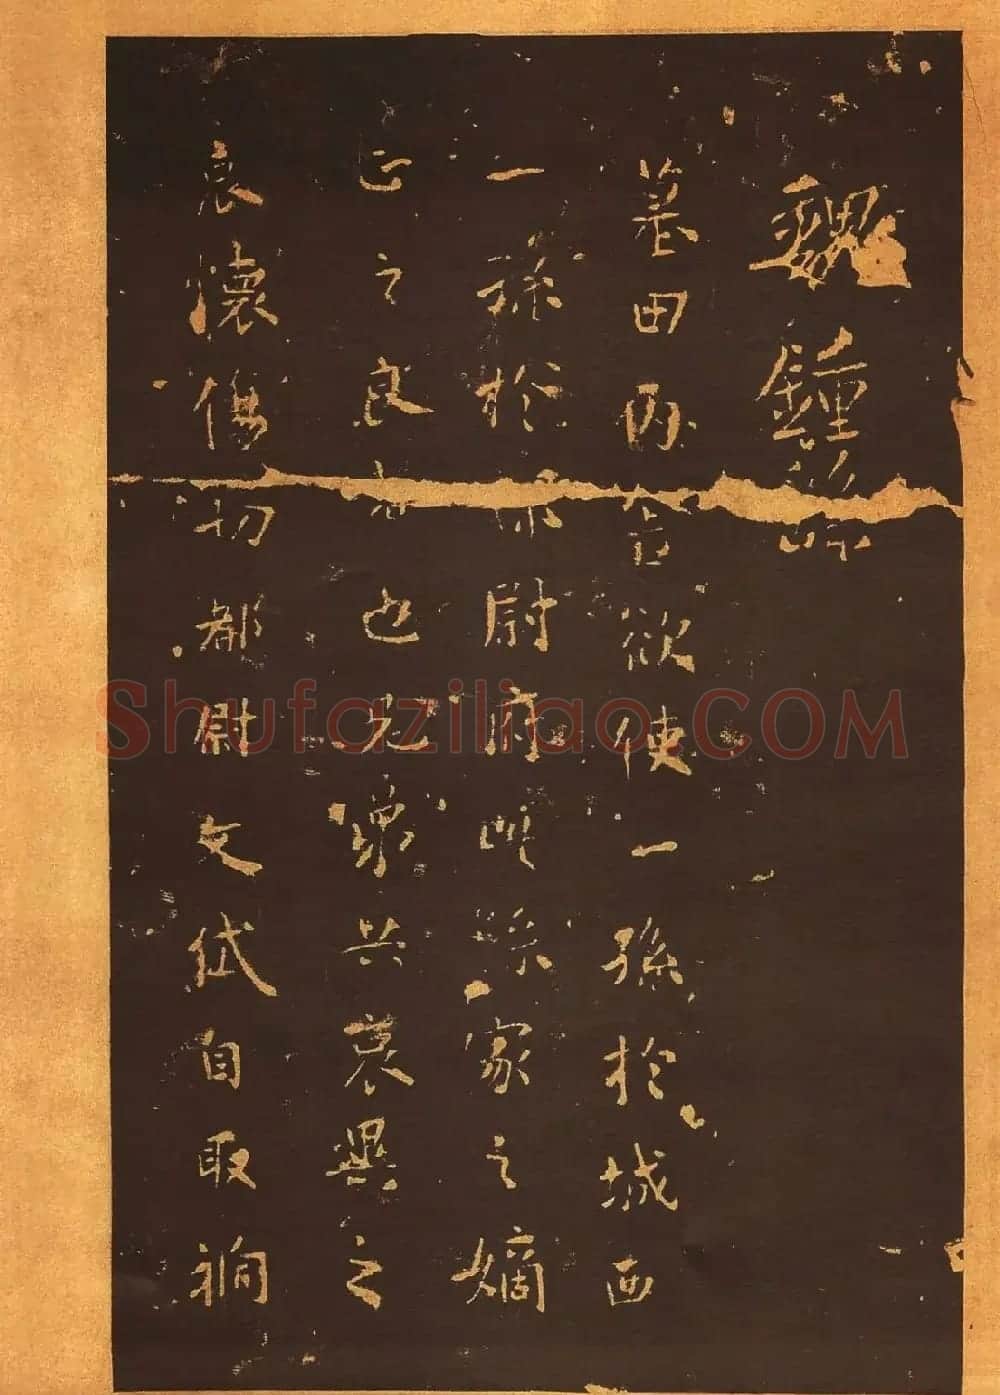 魏鍾繇
墓田丙舍欲使一孫於城西
一孫於都尉府此繇家之嫡
正之良者也兄弟共哀異之
哀懷傷切都尉文岱自取禍
Shufaziliao.COM